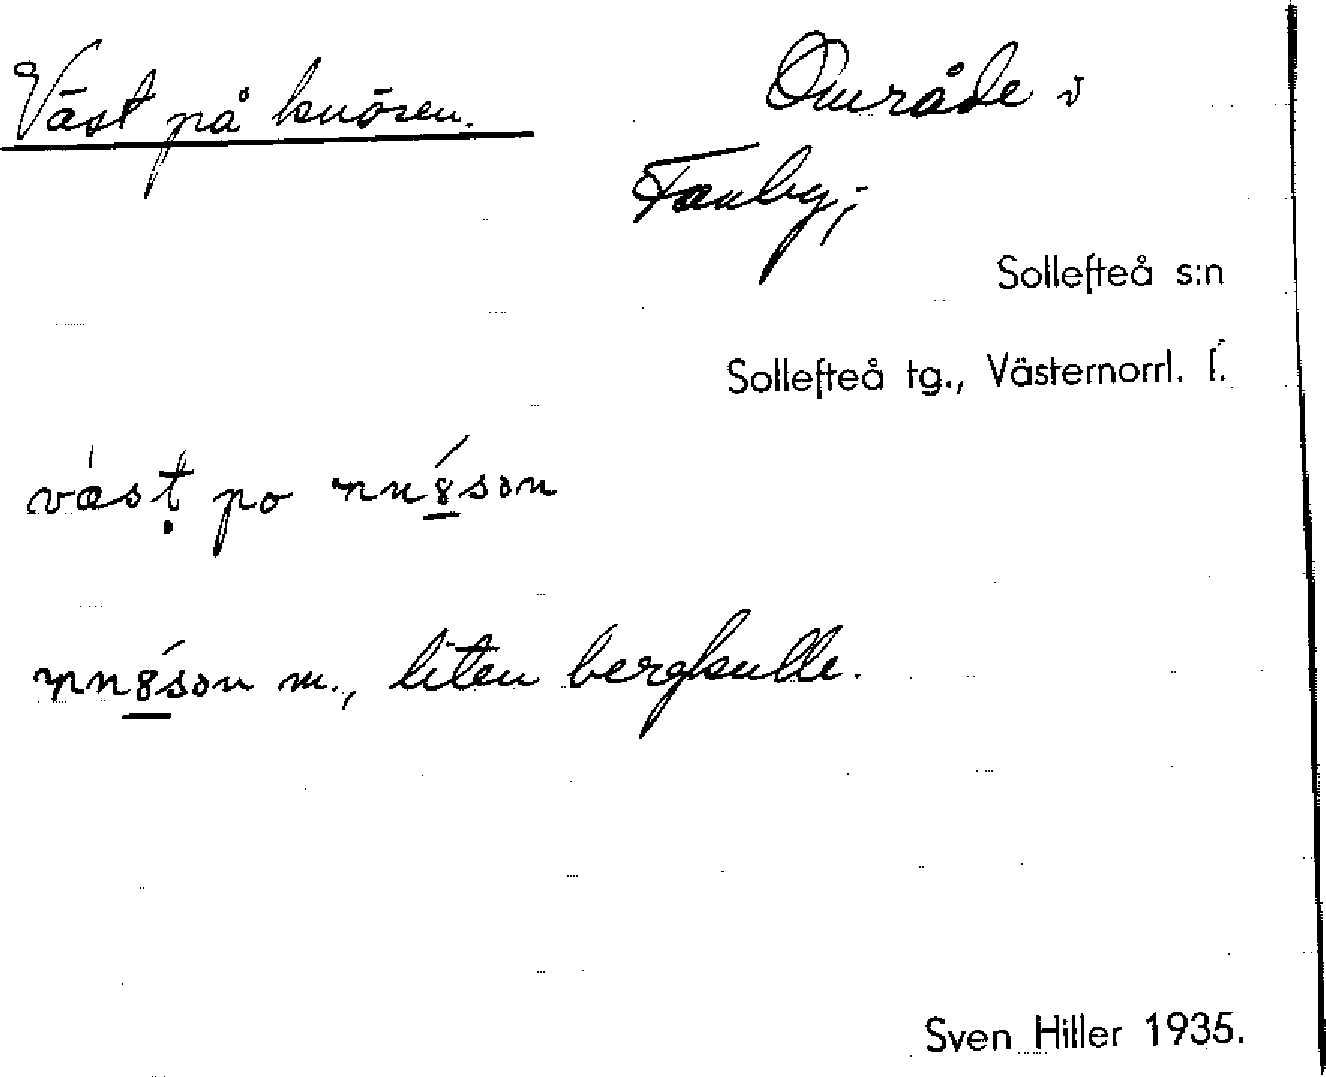 Väst på knösen. Område i
Tanby;
Sollefteå s:n
Sollefteå tg., Västernorrl. l.
väst po
m., liten bergkulle.
Sven Hiller 1935.